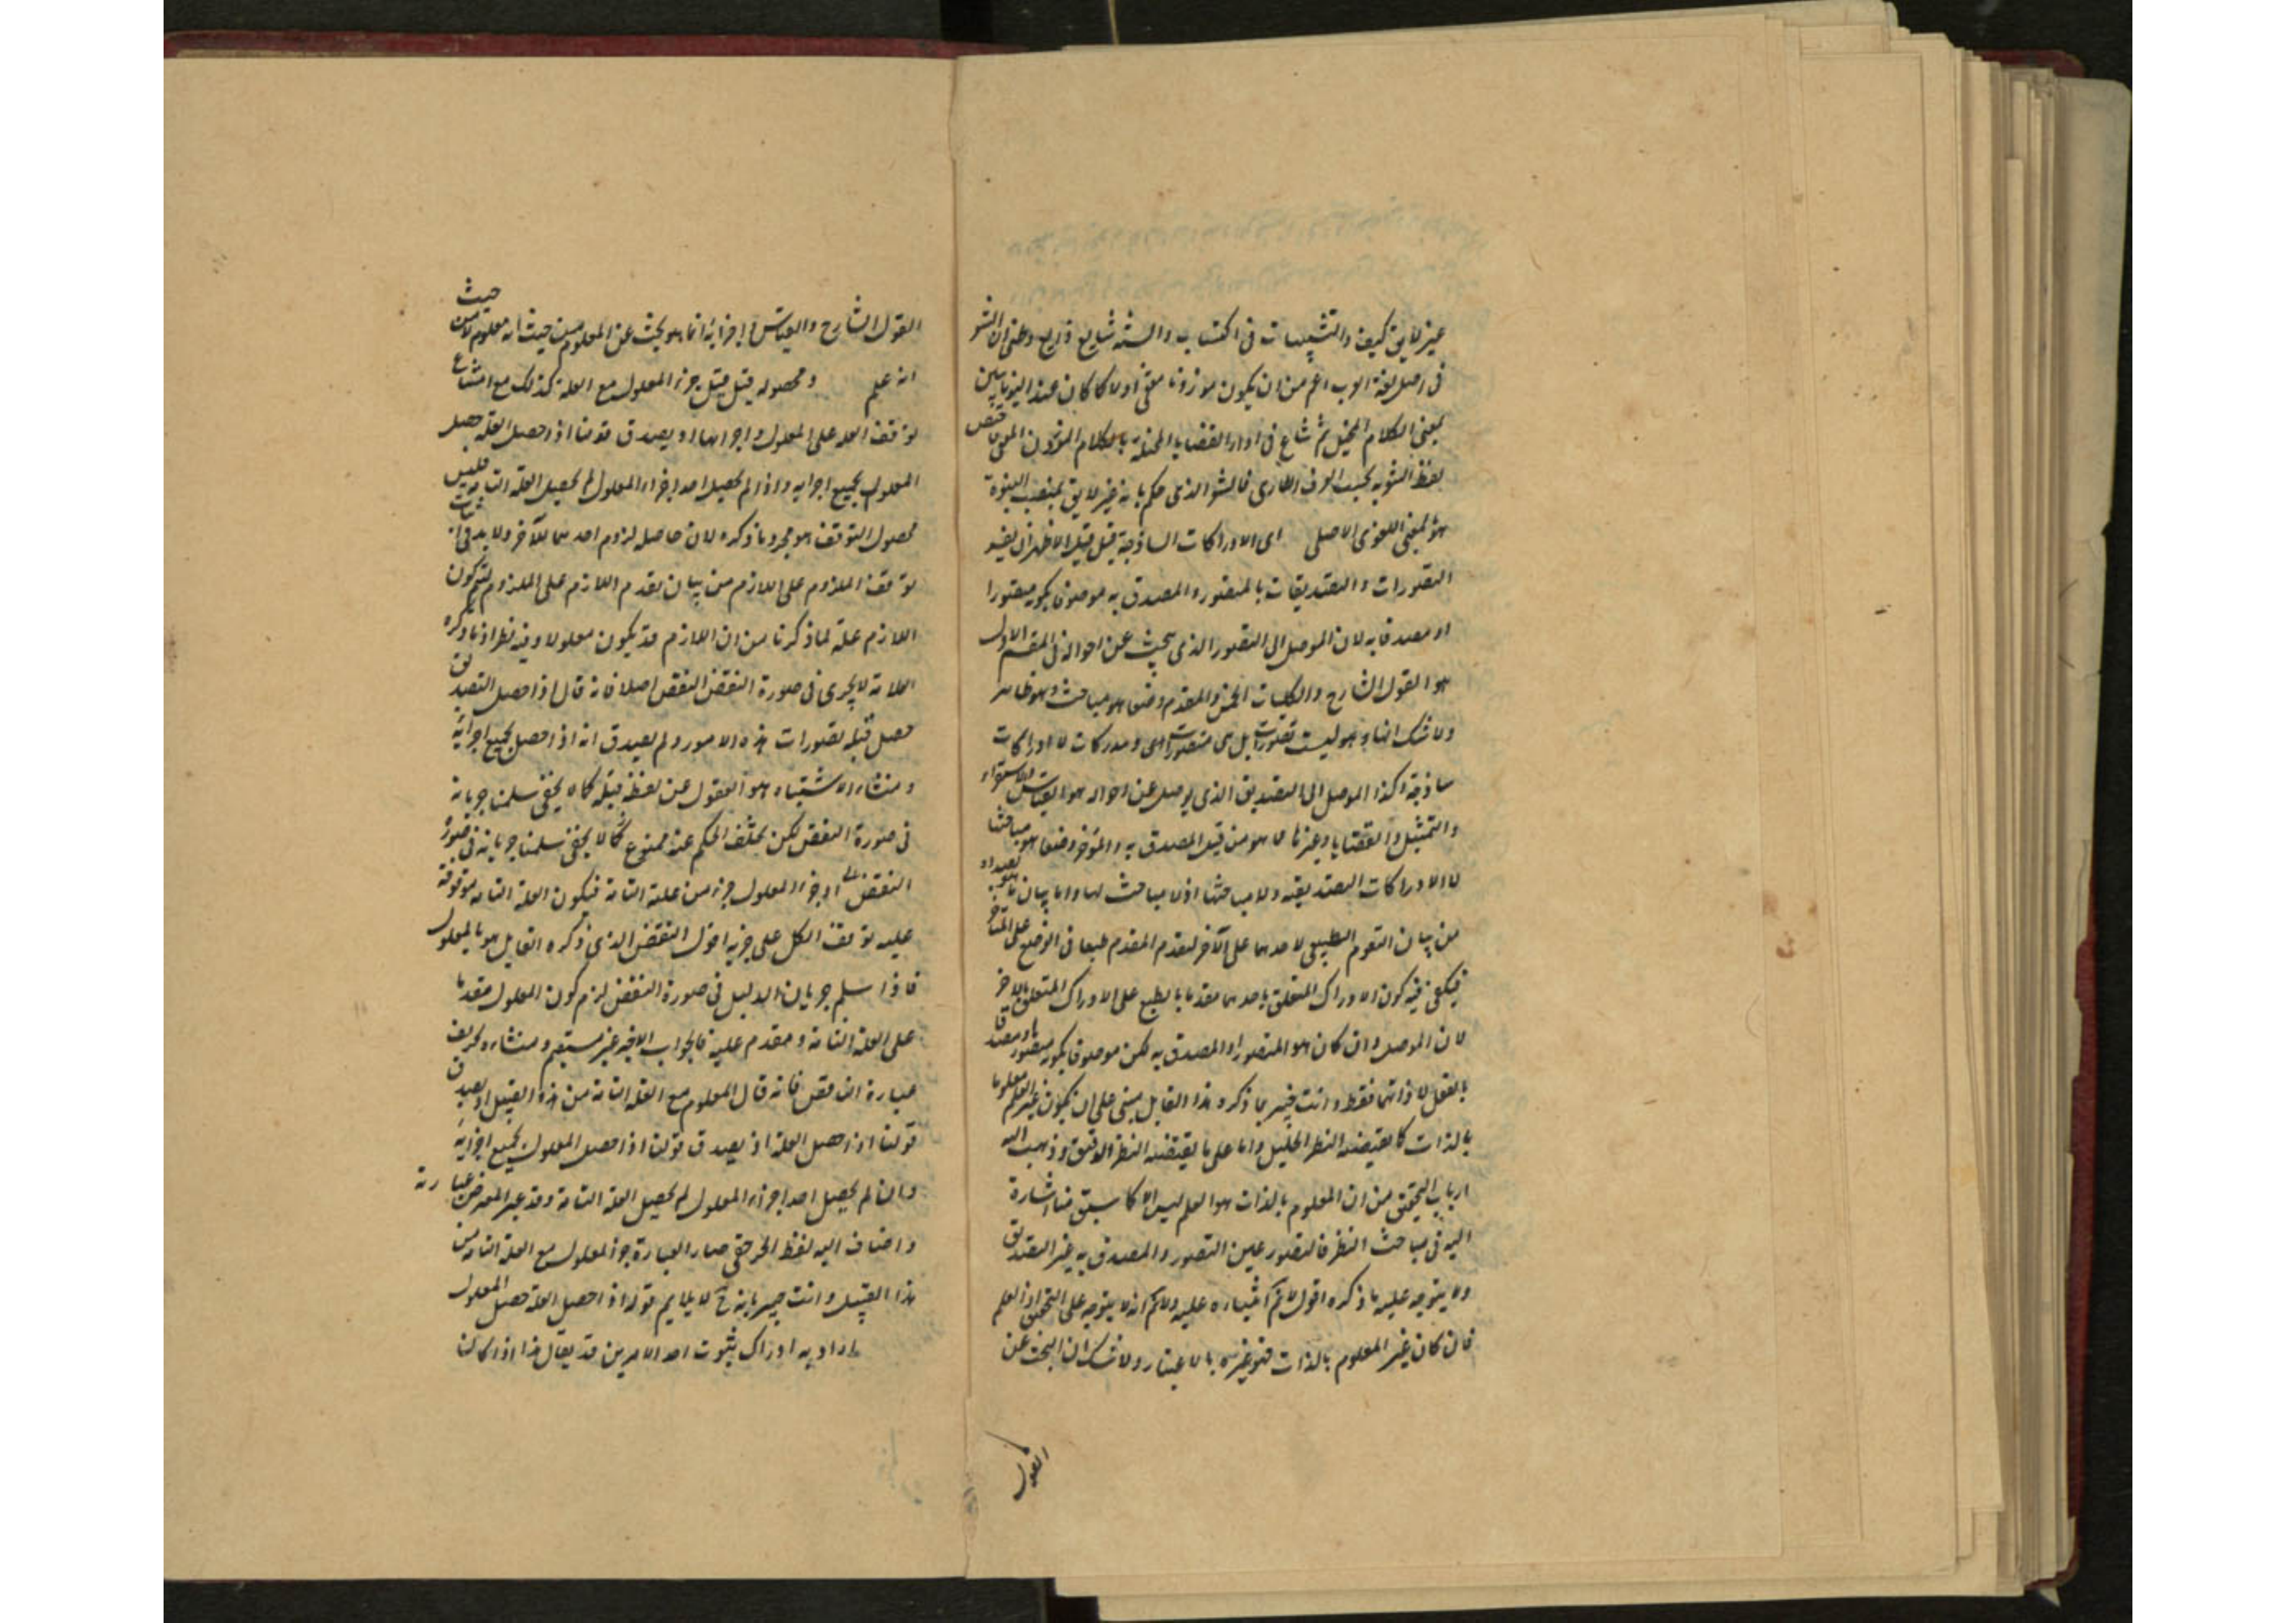 غير لايق كيف والتشبيهات في الكتاب والسنة شايع ذايع وظني ان الشعر
في اصل لغة العرب اعم من ان يكون موزونا مقفى اولا كما كان عند اليونانيين
بمعنى الكلام المخيل ثم شاع في اداء القضايا المخيلة بالكلام الموزون المقفى فخص
لفظ الشعر به بحسب العرف الطارى فالشعر الذي حكم بانه غير لايق بمنصب النبوة
هو المعنى اللغوى الاصلى اى الادراكات الساذجة قيل قيل الاظهر ان يفسر
التصورات والتصديقات بالمتصور والمصدق به موصوفا بكونه متصورا
او مصدقا به لان الموصل الى التصور الذي يبحث عن احواله في القسم الاول
هو القول الشارح والكليات الخمس والمقدم وضعا هو مباحثه وهو ظاهر
ولا شك انها وهو ليست تصورات بل هى متصورات اى ومدركات لا ادراكات
ساذجة وكذا الموصل الى التصديق الذي يوصل عن احواله هو القياس والاستقراء
والتمثيل والقضايا وغيرها مما هو من قبيل المصدق به والمؤخر وضعا هو مباحثها
لا الادراكات التصديقية ولا مباحثها اذ لا مباحث لها واما بيان ما هو بصدده
من بيان التقدم الطبيعى لاحدهما على الآخر ليقدم المقدم طبعا في الوضع على المتأخر
فيكفى فيه كون الادراك المتعلق باحدهما مقدما بالطبع على الادراك المتعلق بالاخر
لان الموصل وان كان هو المتصور او المصدق به لكن موصوفا بكونه متصورا او مصدقا
بالفعل لا ذاتهما فقط وانت خبير بما ذكره هذا القايل مبنى على ان يكون العلم غير المعلوم
بالذات كما يقتضيه النظر الجليل واما على ما يقتضيه النظر الدقيق وذهب اليه
ارباب التحقيق من ان المعلوم بالذات هو العلم ليس الا كما سبق منا اشارة
اليه في مباحث النظر فالمتصور عين التصور والمصدق به عين التصديق
ولا يتوجه عليه ما ذكره اقول لا ثم اشباره عليه ولا ثم انه لا يتوجه على التحقيق اذ العلم
فان كان عين المعلوم بالذات فهو غيره بالاعتبار ولا شك ان البحث عن
القول
القول الشارح والقياس واجزائه انما هو بحث عن المعلوم من حيث انه معلوم لا من حيث
انه علم ومحصوله قيل قيل جزء المعلول مع العلة كذلك مع امتناع
توقف العلة على المعلول واجزائها اذ يصدق قولنا اذا حصل العلة حصل
المعلول بجميع اجزايه واذا لم يحصل احد اجزاء المعلول لم يحصل العلة التامة فليس
محصول التوقف هو مجرد ما ذكره لان حاصله لزوم احدهما للآخر ولا بد في اثبات
توقف الملزوم على اللازم من بيان تقدم اللازم على الملزوم ليتم كون
اللازم علة لما ذكرنا من ان اللازم قد يكون معلولا وفيه نظر اذ ما ذكره
العلامة لا يجرى في صورة النقض النقض اصلا فانه قال اذا حصل التصديق
حصل قبله تصورات هذه الامور ولم يصدق انه اذا حصل بجميع اجزائه
ومنشاء الاشتباه هو الغفول عن لفظ قبله كما لا يخفى سلمنا جريانه
في صورة النقض لكن تخلف الحكم عنه ممنوع كما لا يخفى سلمنا جريانه في صورة
النقض اذ جزء المعلول جزء من علته التامة فيكون العلة التامة موقوفة
عليه توقف الكل على جزئه اقول النقض الذي ذكره القايل هو بالمعلول
فاذا سلم جريان الدليل في صورة النقض لزم كون المعلول متقدما
على العلة التامة ومقدم عليه فالجواب الاخير غير مستقيم ومنشاءه تحريف
عبارة الناقض فانه قال المعلوم مع العلة التامة من هذا القبيل او يصدق
قولنا اذا حصل العلة اذ يصدق قولنا اذا حصل المعلول بجميع اجزايه
وان لم يحصل احد اجزاء المعلول لم يحصل العلة التامة وقد غير المعرض عبارته
واضاف اليه لفظ الجز حتى صار العبارة جزء المعلول مع العلة التامة من
هذا القبيل وانت خبير بانه ح لا يلايم قوله اذا حصل العلة حصل المعلول
اراد به ادراك بثبوت احد الامرين قد يقال هذا اذا كانا